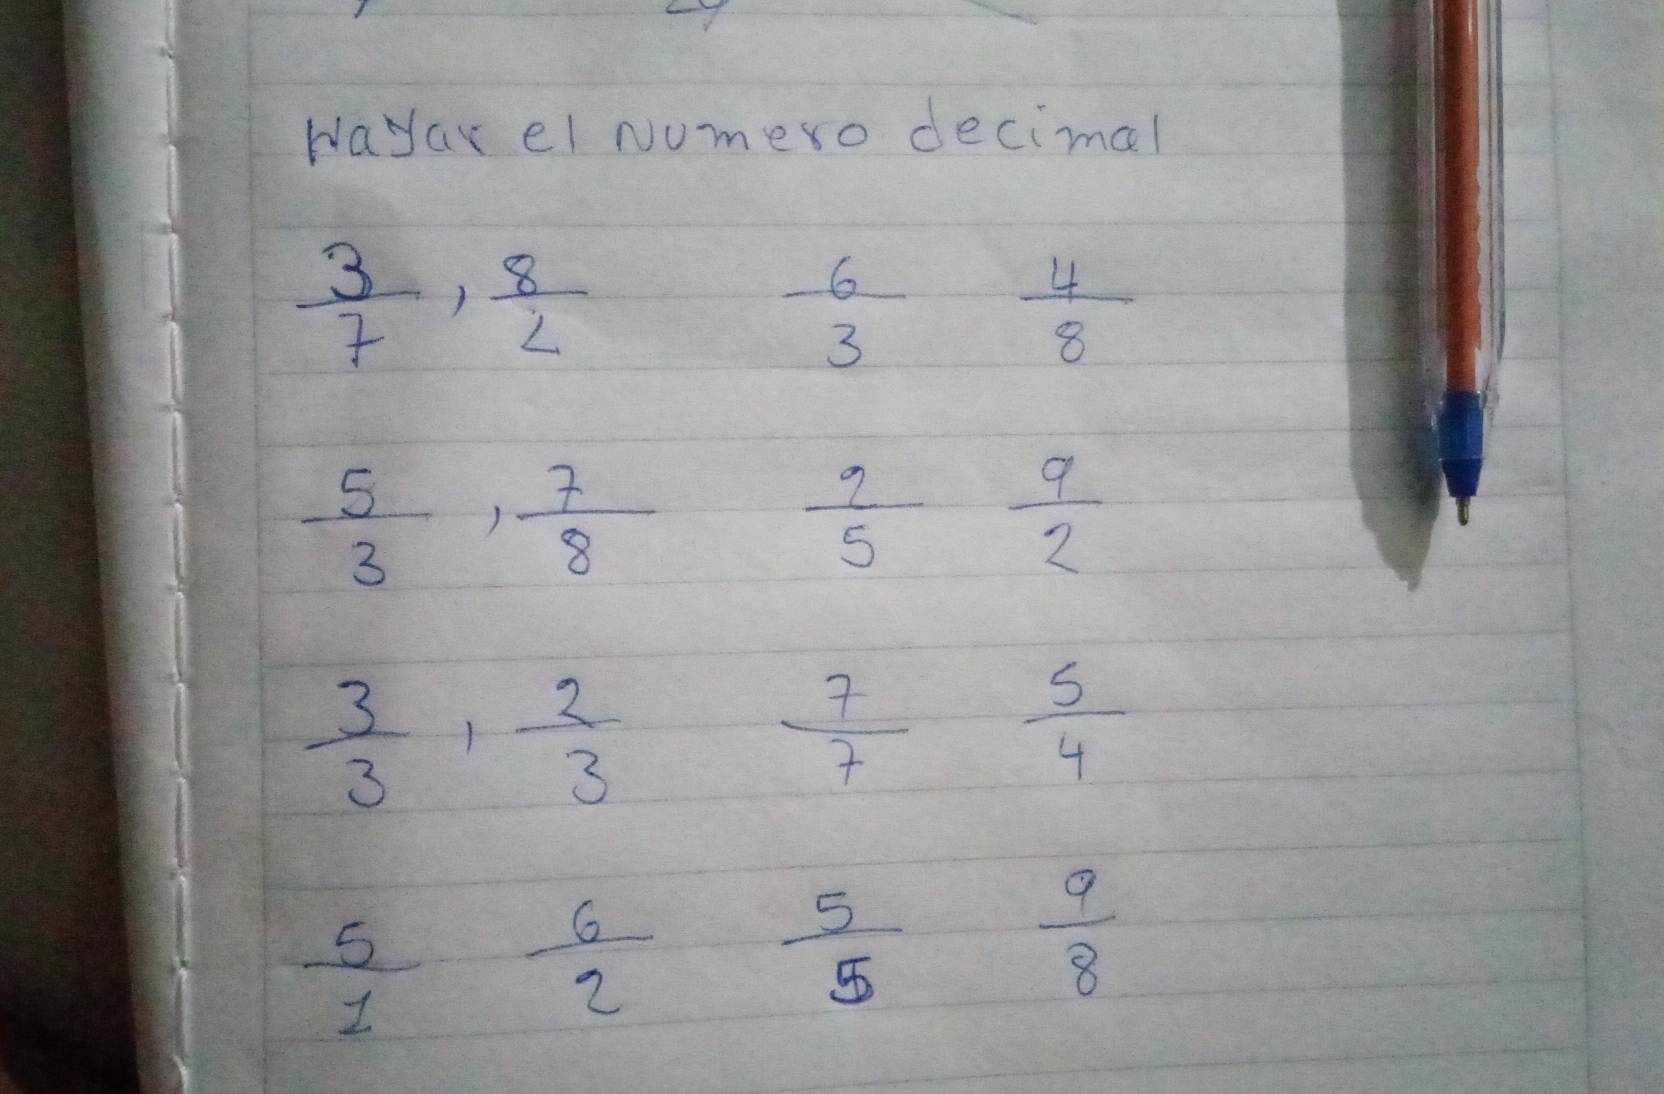 Hayar el Numero decimal
3/7 , 8/2 6/3 4/8
5/3 , 7/8 2/5 9/2
3/3 , 2/3 7/7 5/4
5/1 6/2 5/5 9/8